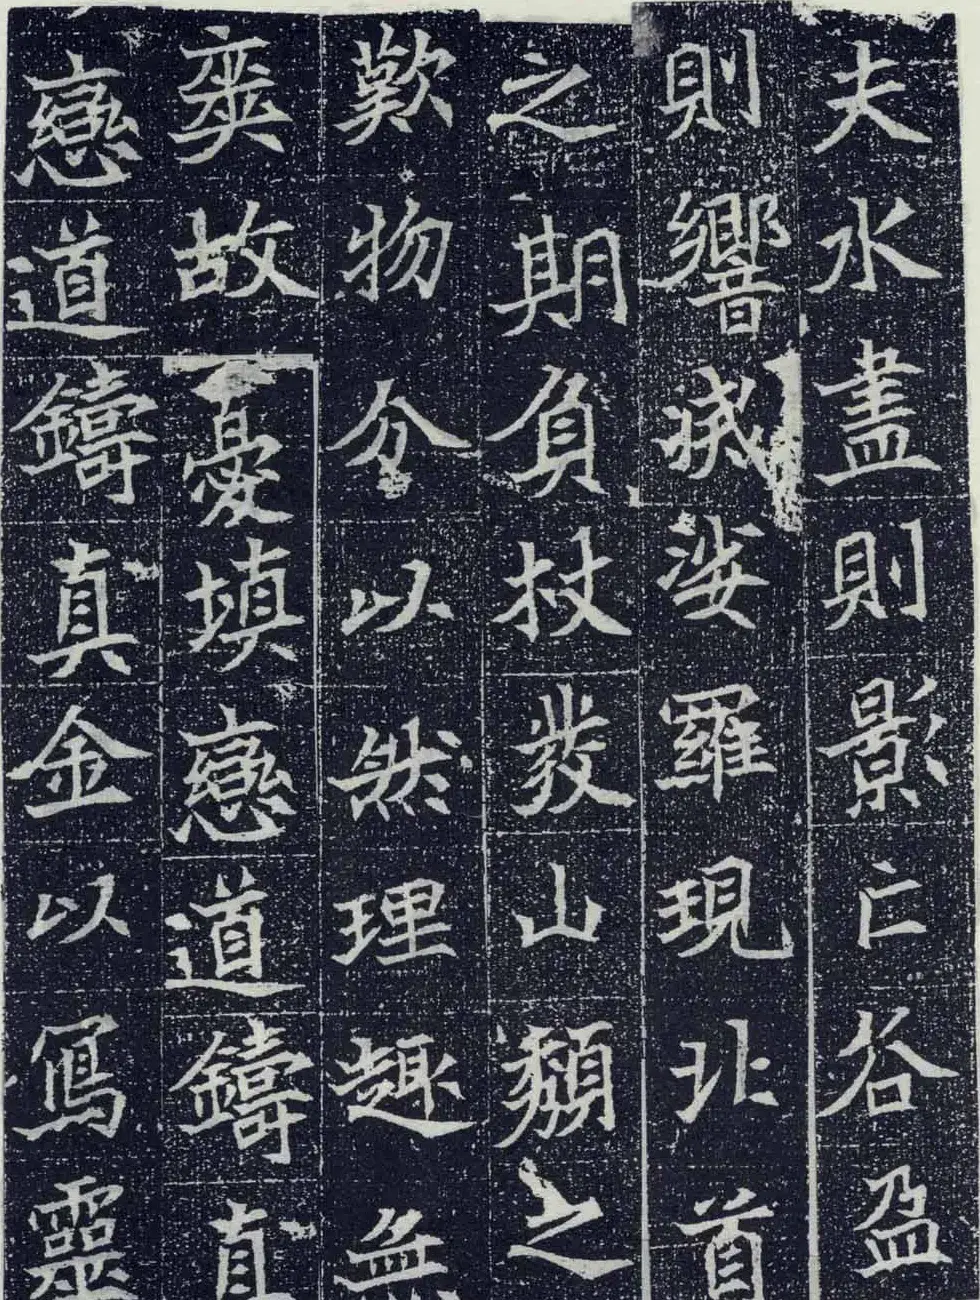 夫水盡則影亡谷盈
則響滅娑羅現北首
之期負杖發山頹之
歎物分以然理趣無
奕故憂填戀道鑄真
戀道鑄真金以寫靈